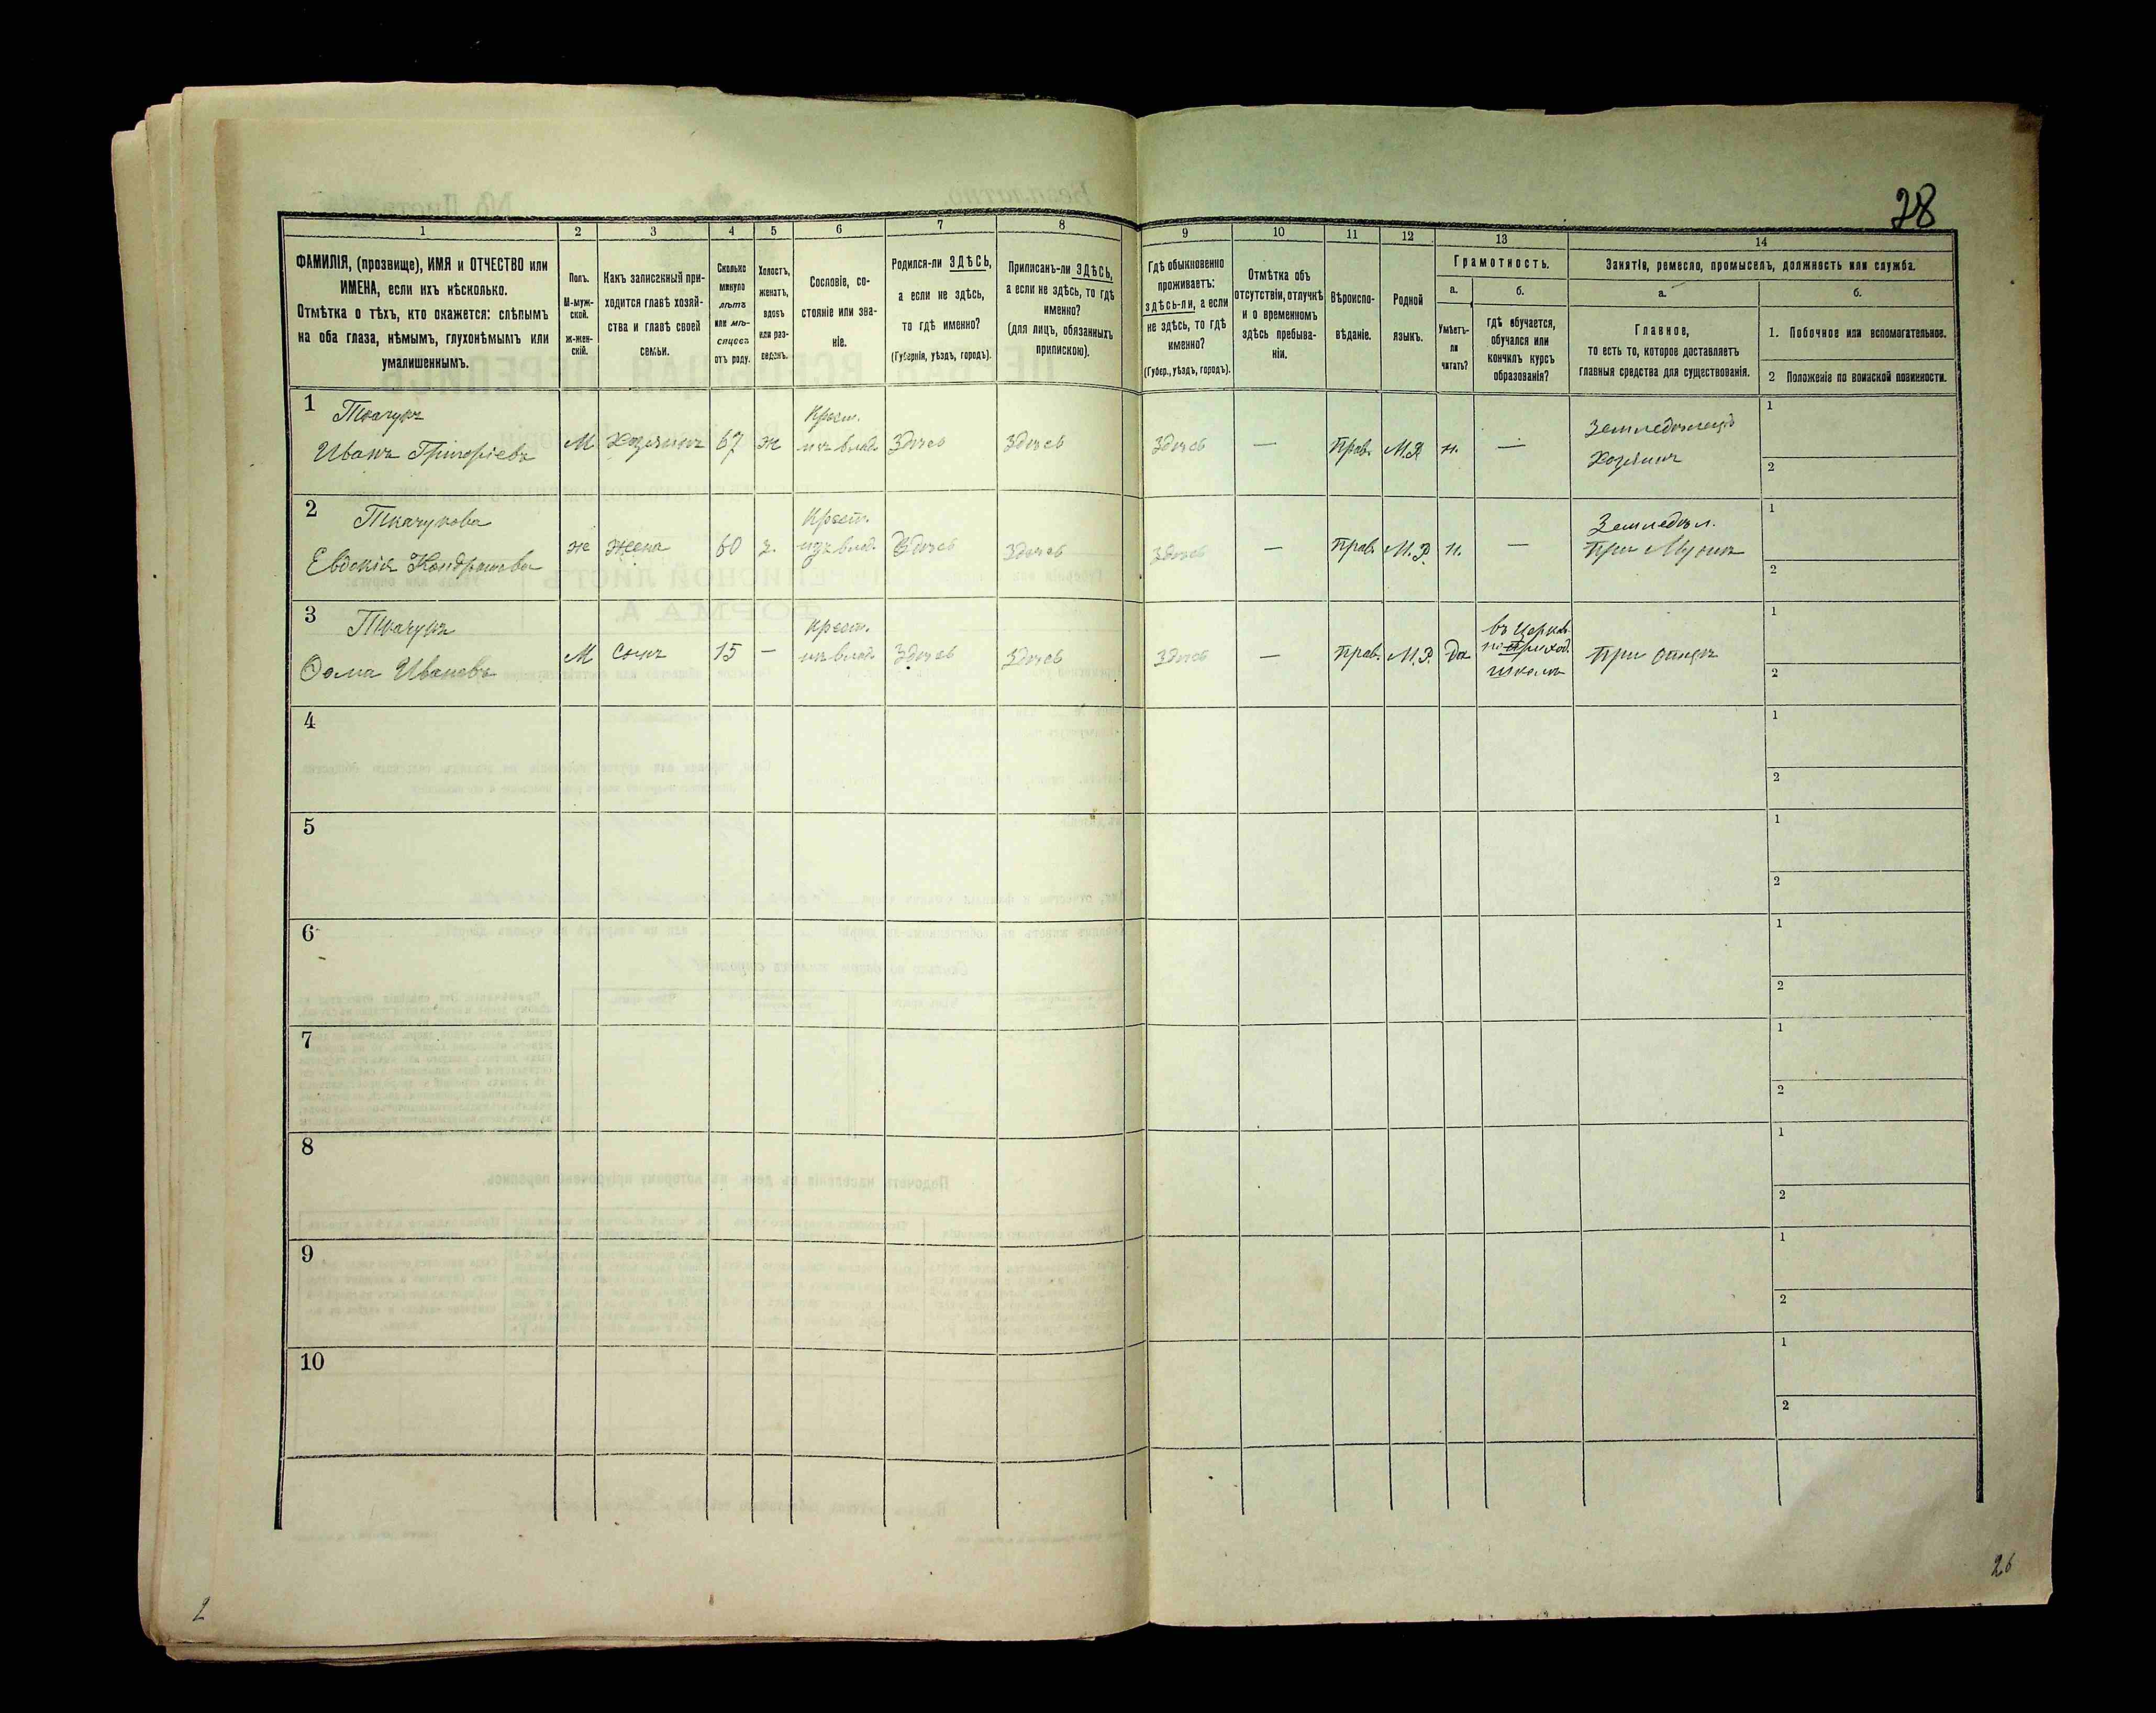 28
1
2
3
4
5
6
7
8
9
10
11
12
13
14
ФАМИЛІЯ, (прозвище), ИМЯ и ОТЧЕСТВО или
ИМЕНА, если ихъ нѣсколько.
Отмѣтка о тѣхъ, кто окажется: слѣпымъ
на оба глаза, нѣмымъ, глухонѣмымъ или
умалишеннымъ.
Полъ.
М-муж-
ской.
ж-жен-
скій.
Какъ записанный при-
ходится главѣ хозяй-
ства и главѣ своей
семьи.
Сколько
минуло
лѣтъ
или мѣ-
сяцевъ
отъ роду.
Холостъ,
женатъ,
вдовъ
или раз-
веденъ.
Сословіе, со-
стояніе или зва-
ніе.
Родился-ли ЗДѢСЬ,
а если не здѣсь,
то гдѣ именно?
(Губернія, уѣздъ, городъ).
Приписанъ-ли ЗДѢСЬ,
а если не здѣсь, то гдѣ
именно?
(для лицъ, обязанныхъ
припискою).
Гдѣ обыкновенно
проживаетъ:
здѣсь-ли, а если
не здѣсь, то гдѣ
именно?
(Губер., уѣздъ, городъ).
Отмѣтка объ
отсутствіи, отлучкѣ
и о временномъ
здѣсь пребыва-
ніи.
Вѣроиспо-
вѣданіе.
Родной
языкъ.
Грамотность.
а.
Умѣетъ-
ли
читать?
б.
гдѣ обучается,
обучался или
кончилъ курсъ
образованія?
Занятіе, ремесло, промыселъ, должность или служба.
а.
Главное,
то есть то, которое доставляетъ
главныя средства для существованія.
б.
1. Побочное или вспомогательное.
2 Положеніе по воинской повинности.
1 Ткачукъ
Иванъ Григоріевъ
М Хозяинъ 67 ж
Крест.
изъ влад.
Здѣсь Здѣсь Здѣсь — Прав. М.Р. н. —
Земледѣлецъ
Хозяинъ
1
2
2 Ткачукова
Евдокія Кондратьева
ж жена 60 з.
Крест.
изъ влад.
Здѣсь Здѣсь Здѣсь — Прав. М.Р. н. —
Земледѣл.
При Мужѣ
1
2
3 Ткачукъ
Ѳома Ивановъ
М Сынъ 15 —
крест.
изъ влад.
Здѣсь Здѣсь Здѣсь — Прав. М.Р. Да
въ Церков.
приход.
школѣ
При Отцѣ
1
2
4
1
2
5
1
2
6
1
2
7
1
2
8
1
2
9
1
2
10
1
2
2
26